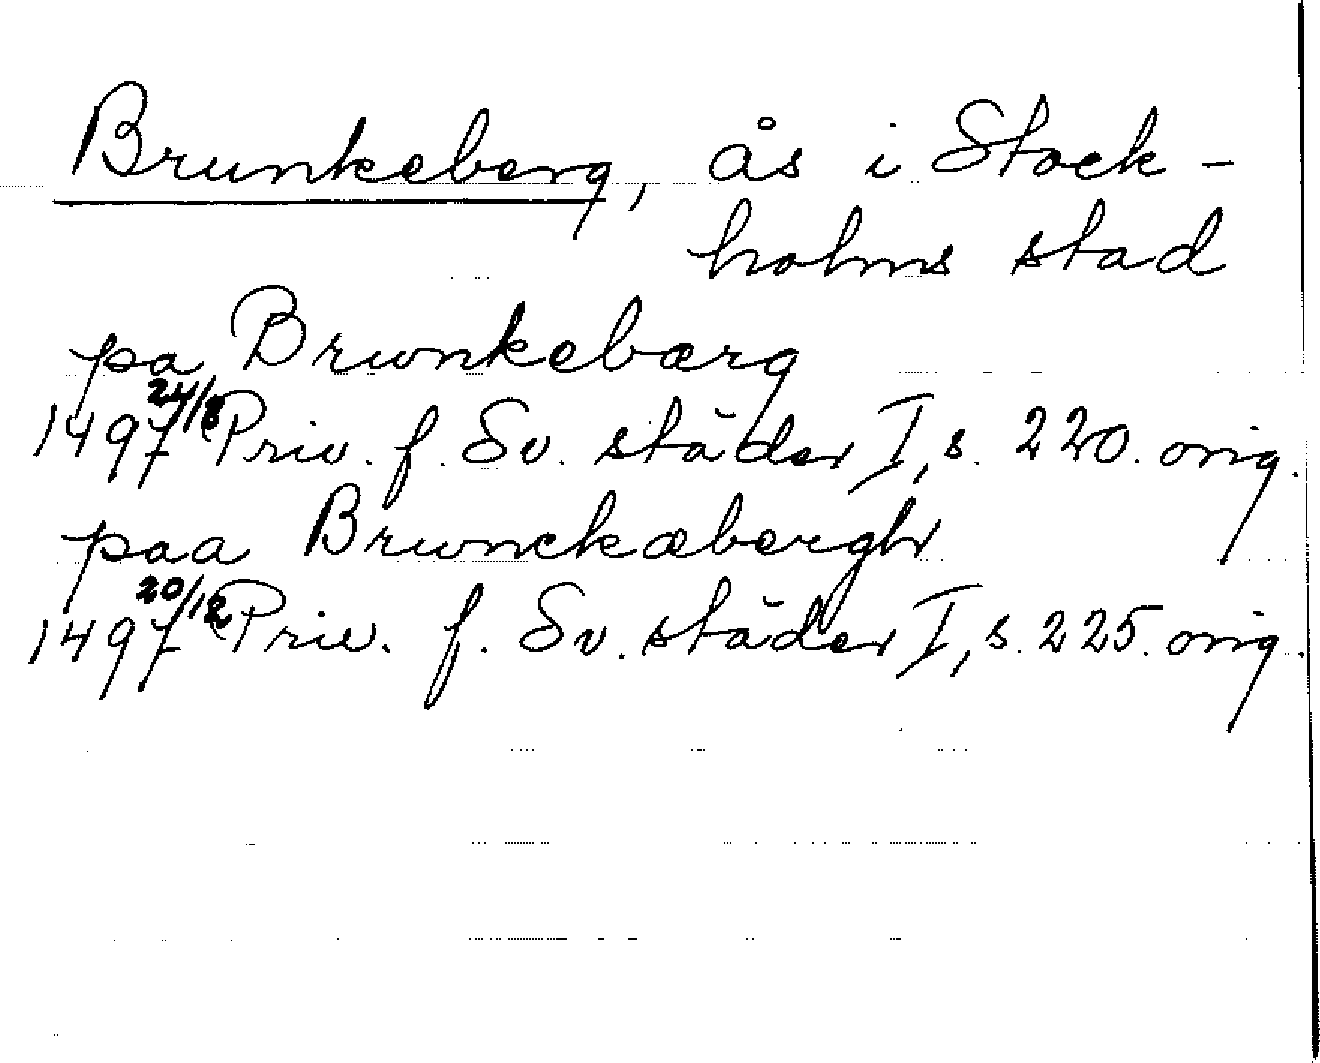 Brunkeberg, ås i Stock-
holms stad
pa Brwnkebærg
1497 24/8 Priv. f. Sv. städer I, s. 220. orig.
paa Brwnckæbergh
1497 20/12 Priv. f. Sv. städer I, s. 225. orig.